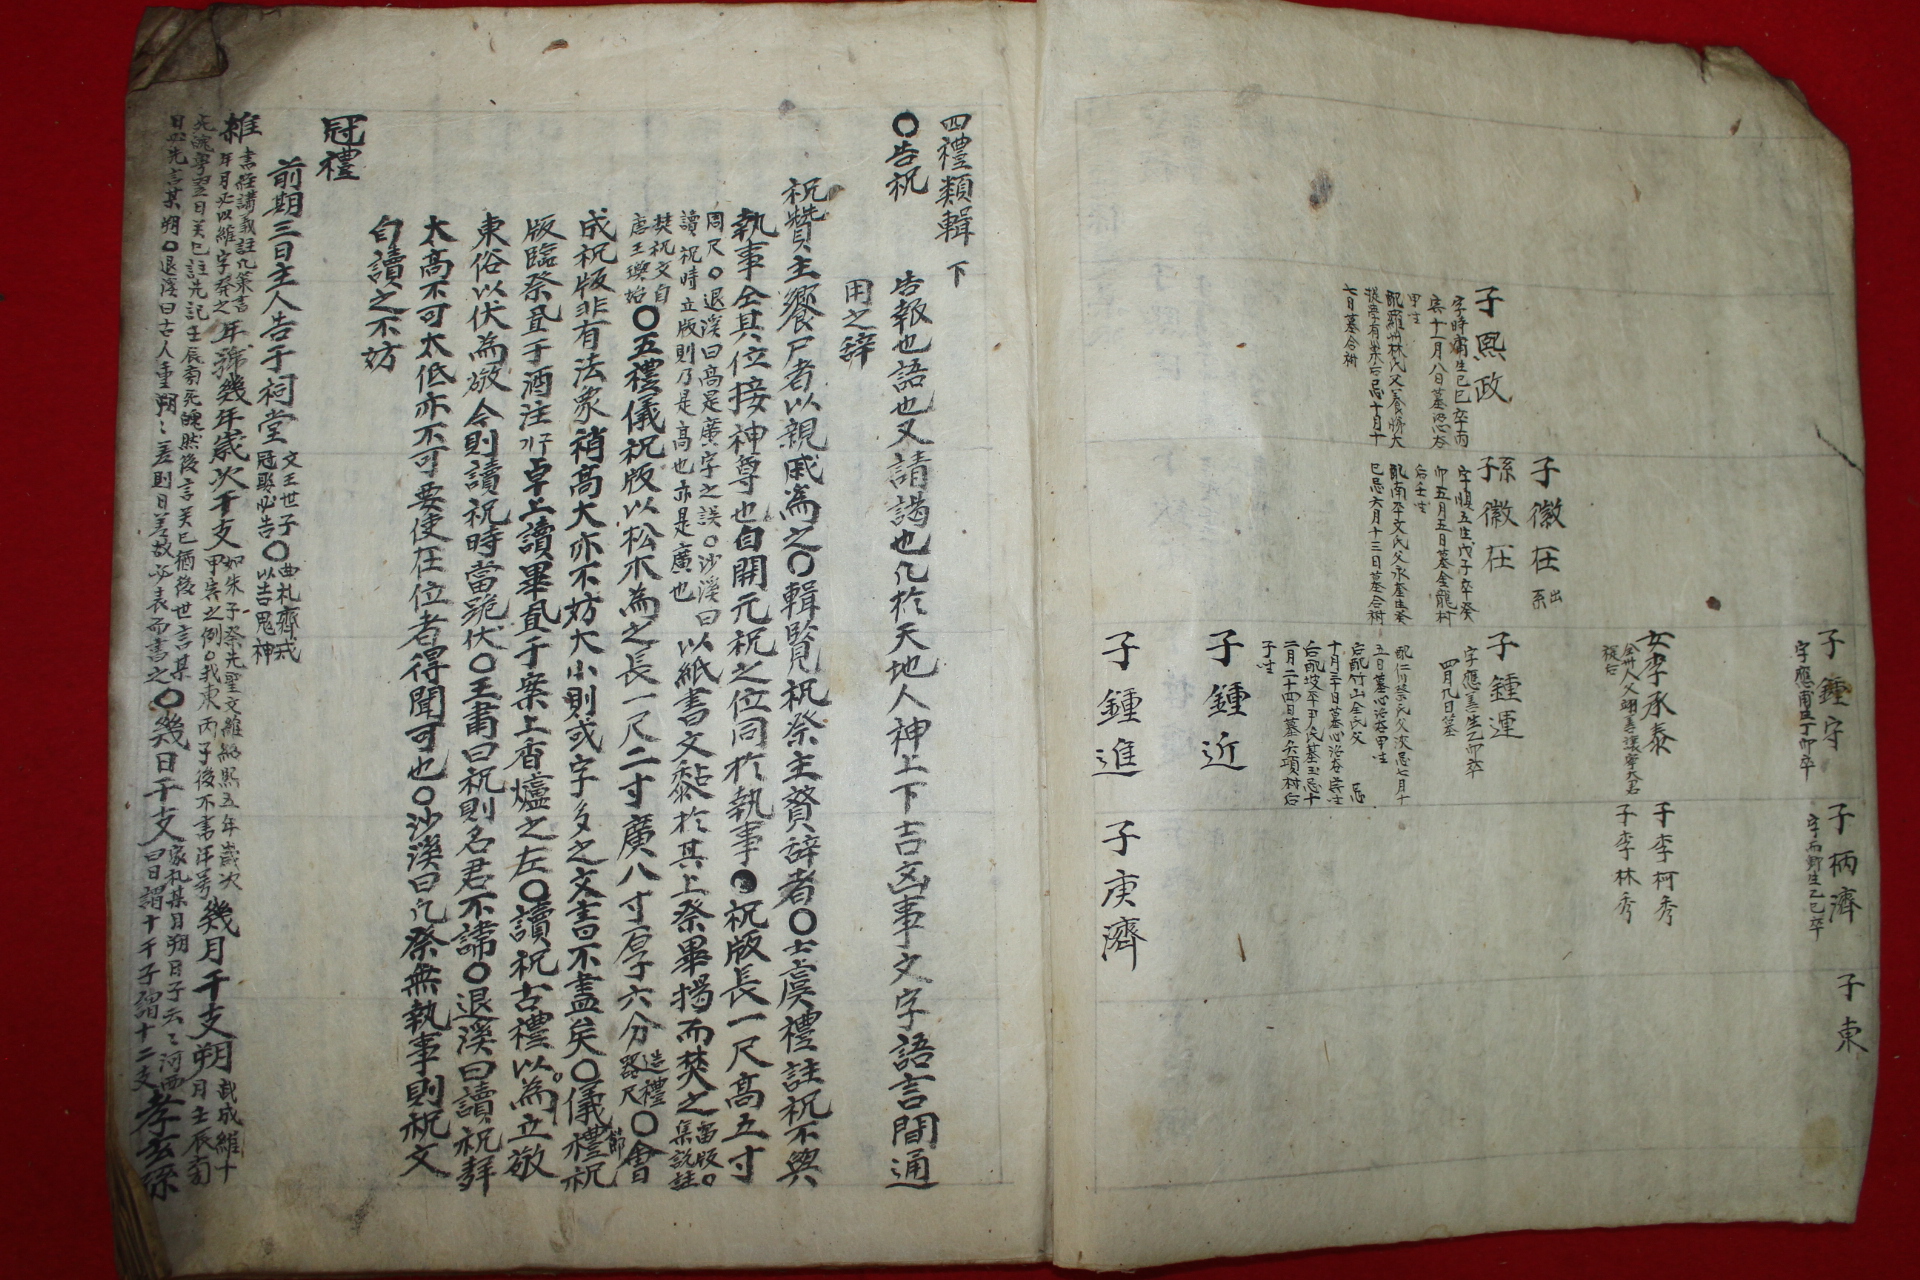 子鍾守
字應甫生丁卯卒
子柄濟
生乙巳卒
子東
女李承泰
子李柯秀
子李林秀
子徽在 出系
子熙政
字時甫生己巳卒丙
寅十一月八日墓
甲坐
配羅州林氏父養勝大
提學有崇后忌十月十
七日墓合祔
系子徽在
字順五生戊子卒癸
卯五月五日墓金龍村
后壬坐
配南平文氏父永奎生癸
巳忌六月十三日墓合祔
子鍾運
字應善生乙卯卒
四月九日墓
子鍾近
子鍾進
子庚濟
四禮類輯 下
○告祝
告報也語也又請謁也凡於天地人神上下吉凶事文字語言間通
用之辭
祝贊主饗尸者以親戚為之○輯覽祝祭主贊辭者○士虞禮註祝不與
執事仝其位接神尊也自開元祝之位同於執事●祝版長一尺高五寸
周尺○退溪曰高是廣字之誤○沙溪曰
讀祝時立版則乃是高也亦是廣也
以紙書文黏於其上祭畢揭而焚之
留版○
集說註
焚祝文自
唐王璵始
○五禮儀祝版以松木為之長一尺二寸廣八寸厚六分
造禮
器尺
○會
成祝版非有法象稍高大亦不妨大小則或字多之文書不盡矣○儀禮節祝
版臨祭置于酒注卓上讀畢置于案上香爐之左○讀祝古禮以為立敬
東俗以伏為敬今則讀祝時當跪伏○王肅曰祝則名君不諱○退溪曰讀祝聲
太高不可太低亦不可要使在位者得聞可也○沙溪曰凡祭無執事則祝文
自讀之不妨
冠禮
前期三日主人告于祠堂
文王世子
冠娶必告
○
曲礼齊戒
以告鬼神
維
書經講義註凡策書
年月必以維字發之
年號幾年歲次干支
如朱子祭先聖文維紹熙五年歲次
甲寅之例○我東丙子後不書年號
幾月干支朔
武成維十
月壬辰旁
死魄粤翌日癸巳註先記壬辰旁死魄然後言癸巳猶後世言某
日必先言某朔○退溪曰古人重朔朔差則日差故必表而書之
○幾日干支
家礼某日朔日子云云河西
曰日謂十干子謂十二支
孝玄孫